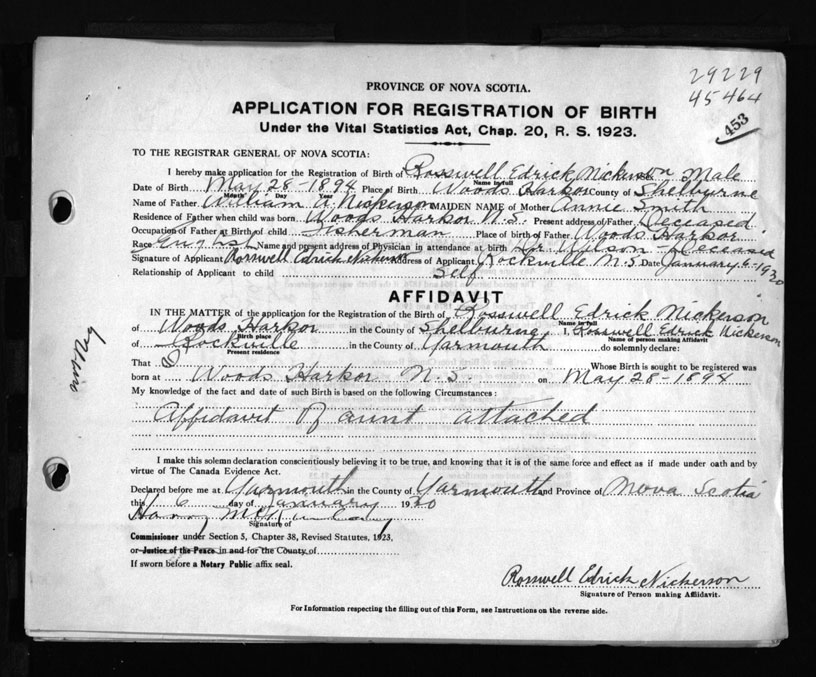 29229
45464
453
PROVINCE OF NOVA SCOTIA.
APPLICATION FOR REGISTRATION OF BIRTH
Under the Vital Statistics Act, Chap. 20, R. S. 1923.
TO THE REGISTRAR GENERAL OF NOVA SCOTIA:
I hereby make application for the Registration of Birth of Rosswell Edrick Nickerson Male
Name in full
Date of Birth May 28-1894 Place of Birth Woods Harbor County of Shelburne
Month Day Year
Name of Father William A. Nickerson MAIDEN NAME of Mother Annie Smith
Residence of Father when child was born Woods Harbor N.S. Present address of Father Deceased
Occupation of Father at Birth of child Fisherman Place of birth of Father Woods Harbor
Race English Name and present address of Physician in attendance at birth Dr. Wilson Deceased
Signature of Applicant Rosswell Edrick Nickerson Address of Applicant Rockville N.S. Date January 6-1930
Relationship of Applicant to child Self
AFFIDAVIT
IN THE MATTER of the application for the Registration of the Birth of Rosswell Edrick Nickerson
Name in full
of Woods Harbor in the County of Shelburne I, Rosswell Edrick Nickerson
Birth place Name of person making Affidavit
of Rockville in the County of Yarmouth do solemnly declare:
Present residence
That Whose Birth is sought to be registered was
born at Woods Harbor N.S. on May 28-1894
My knowledge of the fact and date of such Birth is based on the following Circumstances:
Affidavit of aunt attached
I make this solemn declaration conscientiously believing it to be true, and knowing that it is of the same force and effect as if made under oath and by
virtue of The Canada Evidence Act.
Declared before me at Yarmouth in the County of Yarmouth and Province of Nova Scotia
this 6 day of January 1930
Harry
Signature of
Commissioner under Section 5, Chapter 38, Revised Statutes, 1923,
or Justice of the Peace in and for the County of
If sworn before a Notary Public affix seal.
Rosswell Edrick Nickerson
Signature of Person making Affidavit.
For Information respecting the filling out of this Form, see Instructions on the reverse side.